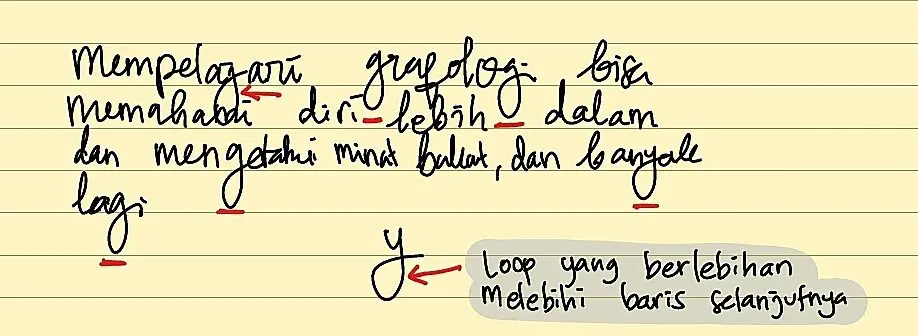 Mempelajari grafologi bisa
memahami diri lebih dalam
dan mengetahui minat bakat, dan banyak
lagi
y
Loop yang berlebihan
Melebihi baris selanjutnya